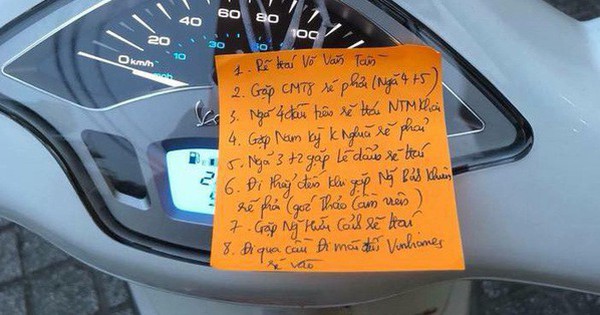 0 km/h
10
20
60
80
100
1. Rẽ trái Võ Văn Tần
2. Gặp CMT8 rẽ phải (Ngã 4+5)
3. Ngã 4 đầu tiên rẽ trái NTM Khai
4. Gặp Nam Kỳ K Nghĩa rẽ phải
5. Ngã 3+2 gặp Lê Duẩn rẽ trái
6. Đi thẳng đến khi gặp Ng Bỉnh Khiêm
rẽ phải (góc Thảo Cầm Viên)
7. Gặp Ng Hữu Cảnh rẽ trái
8. Đi qua cầu Đi mãi đến Vinhomes
rẽ vào